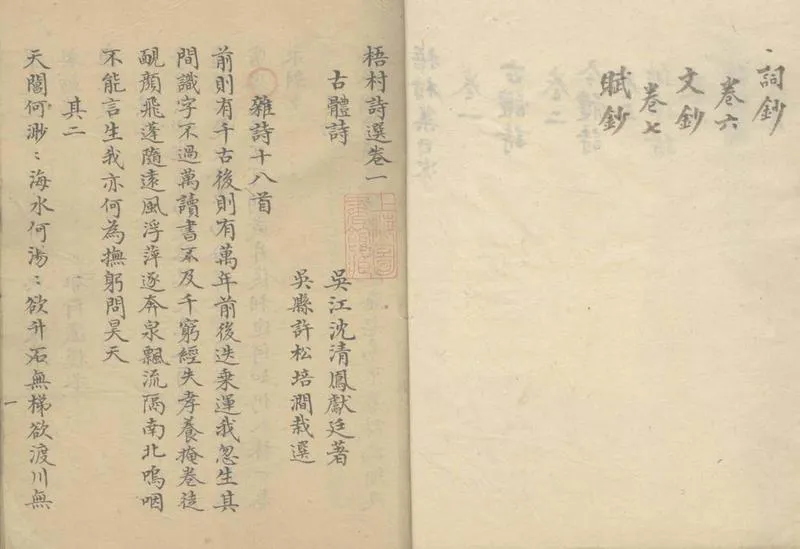 詞鈔
卷六
文鈔
卷七
賦鈔
梧村詩選卷一
古體詩
吳江沈清鳳獻廷著
吳縣許松培澗栽選
雜詩十八首
前則有千古後則有萬年前後迭乘運我忽生其
間識字不過萬讀書不及千窮經失孝養掩卷徒
靦顔飛蓬隨遠風浮萍逐奔泉飄流隔南北嗚咽
不能言生我亦何為撫躬問昊天
其二
天閶何渺〻海水何湯〻欲升石無梯欲渡川無
一
上海圖書館藏